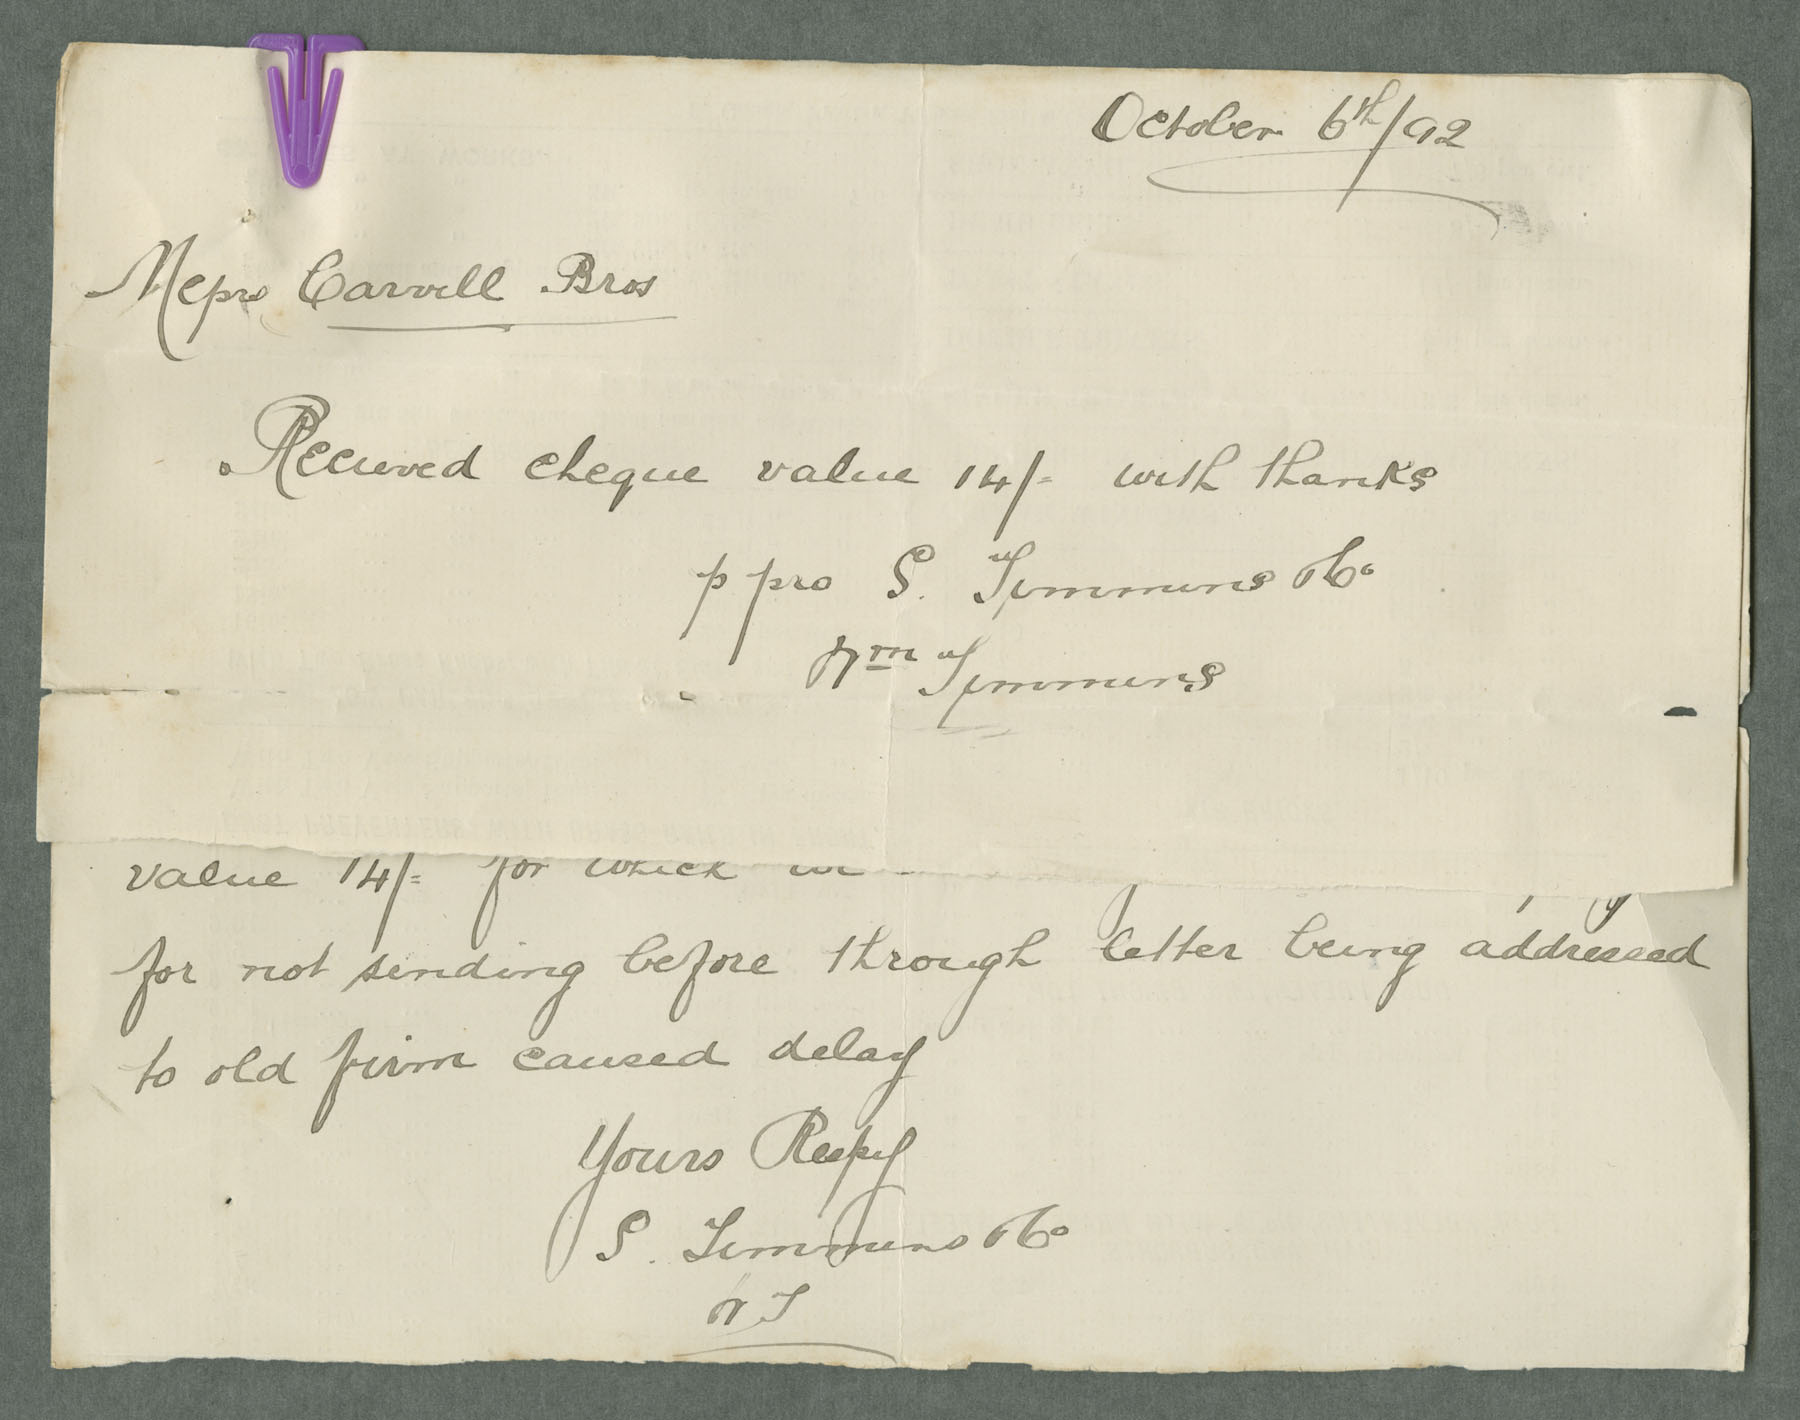 October 6th/92
Messrs Carvill Bros
Received cheque value 14/- with thanks
p pro S. Timmins & Co
Wm Timmins
value 14/- for which we
for not sending before through letter being addressed
to old firm caused delay
Yours Respy
S. Timmins & Co
WT